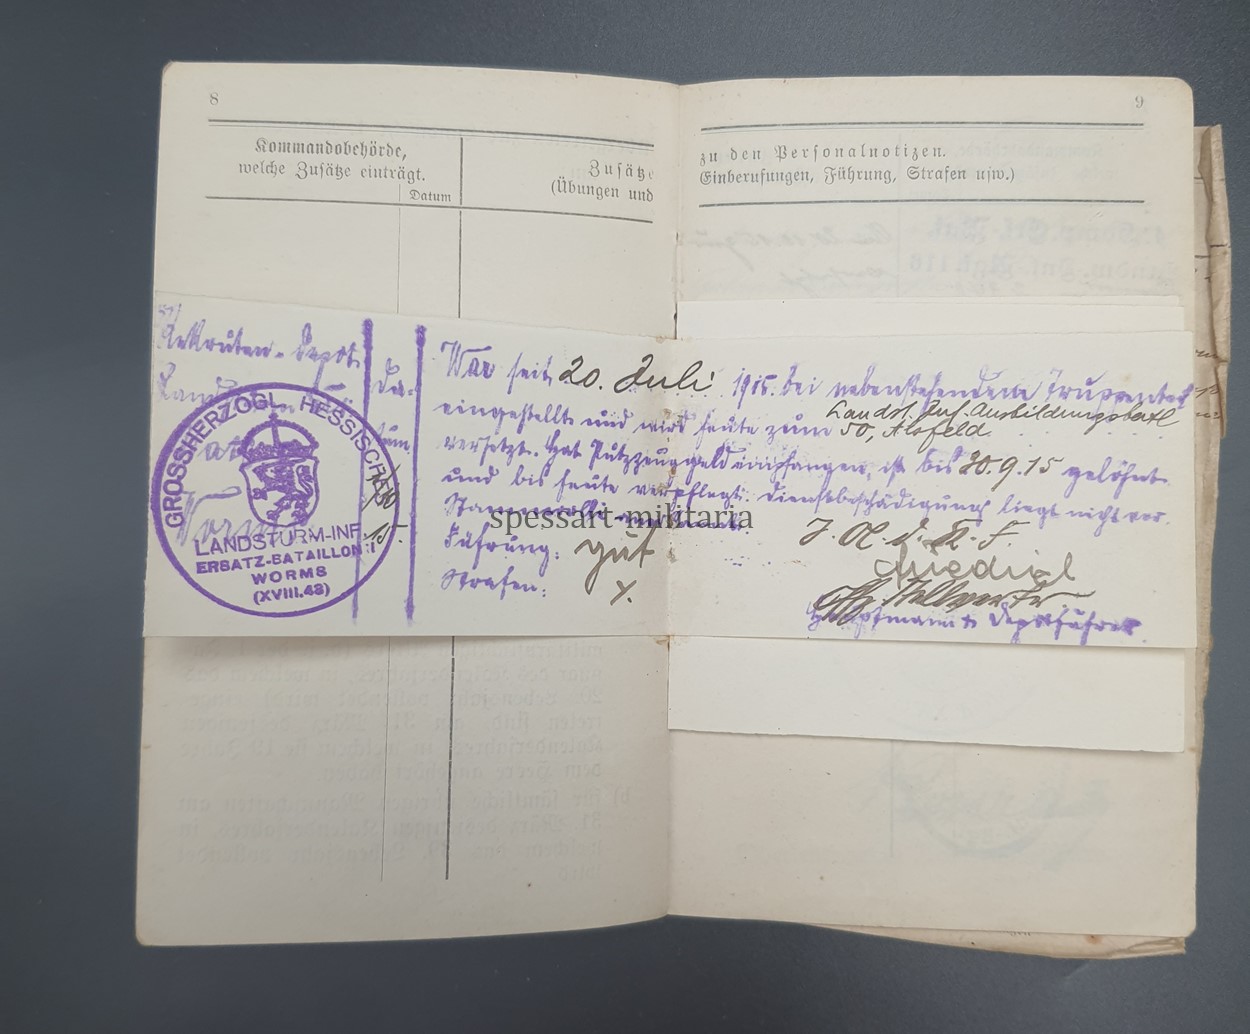 8
Kommandobehörde,
welche Zusätze einträgt.
Datum
Zusätze
(Übungen und
9
zu den Personalnotizen.
Einberufungen, Führung, Strafen usw.)
Rekruten-Depot
Da-
tum
GROSSHERZOGL. HESSISCHES
LANDSTURM-INF.
ERSATZ-BATAILLON I
WORMS
(XVIII.43)
15.
War seit 20. Juli 1915 bei nebenstehendem Truppenteil
eingestellt und wird heute zum Landst. Inf. Ausbildungsbatl
50, Alsfeld
versetzt. Hat Putzzeuggeld empfangen, ist bis 30.9.15 gelöhnt
und bis heute verpflegt. Dienstbeschädigung liegt nicht vor.
Stammrolle
spessart-militaria
Führung: gut
Strafen:
Hauptmann u. Depotführer